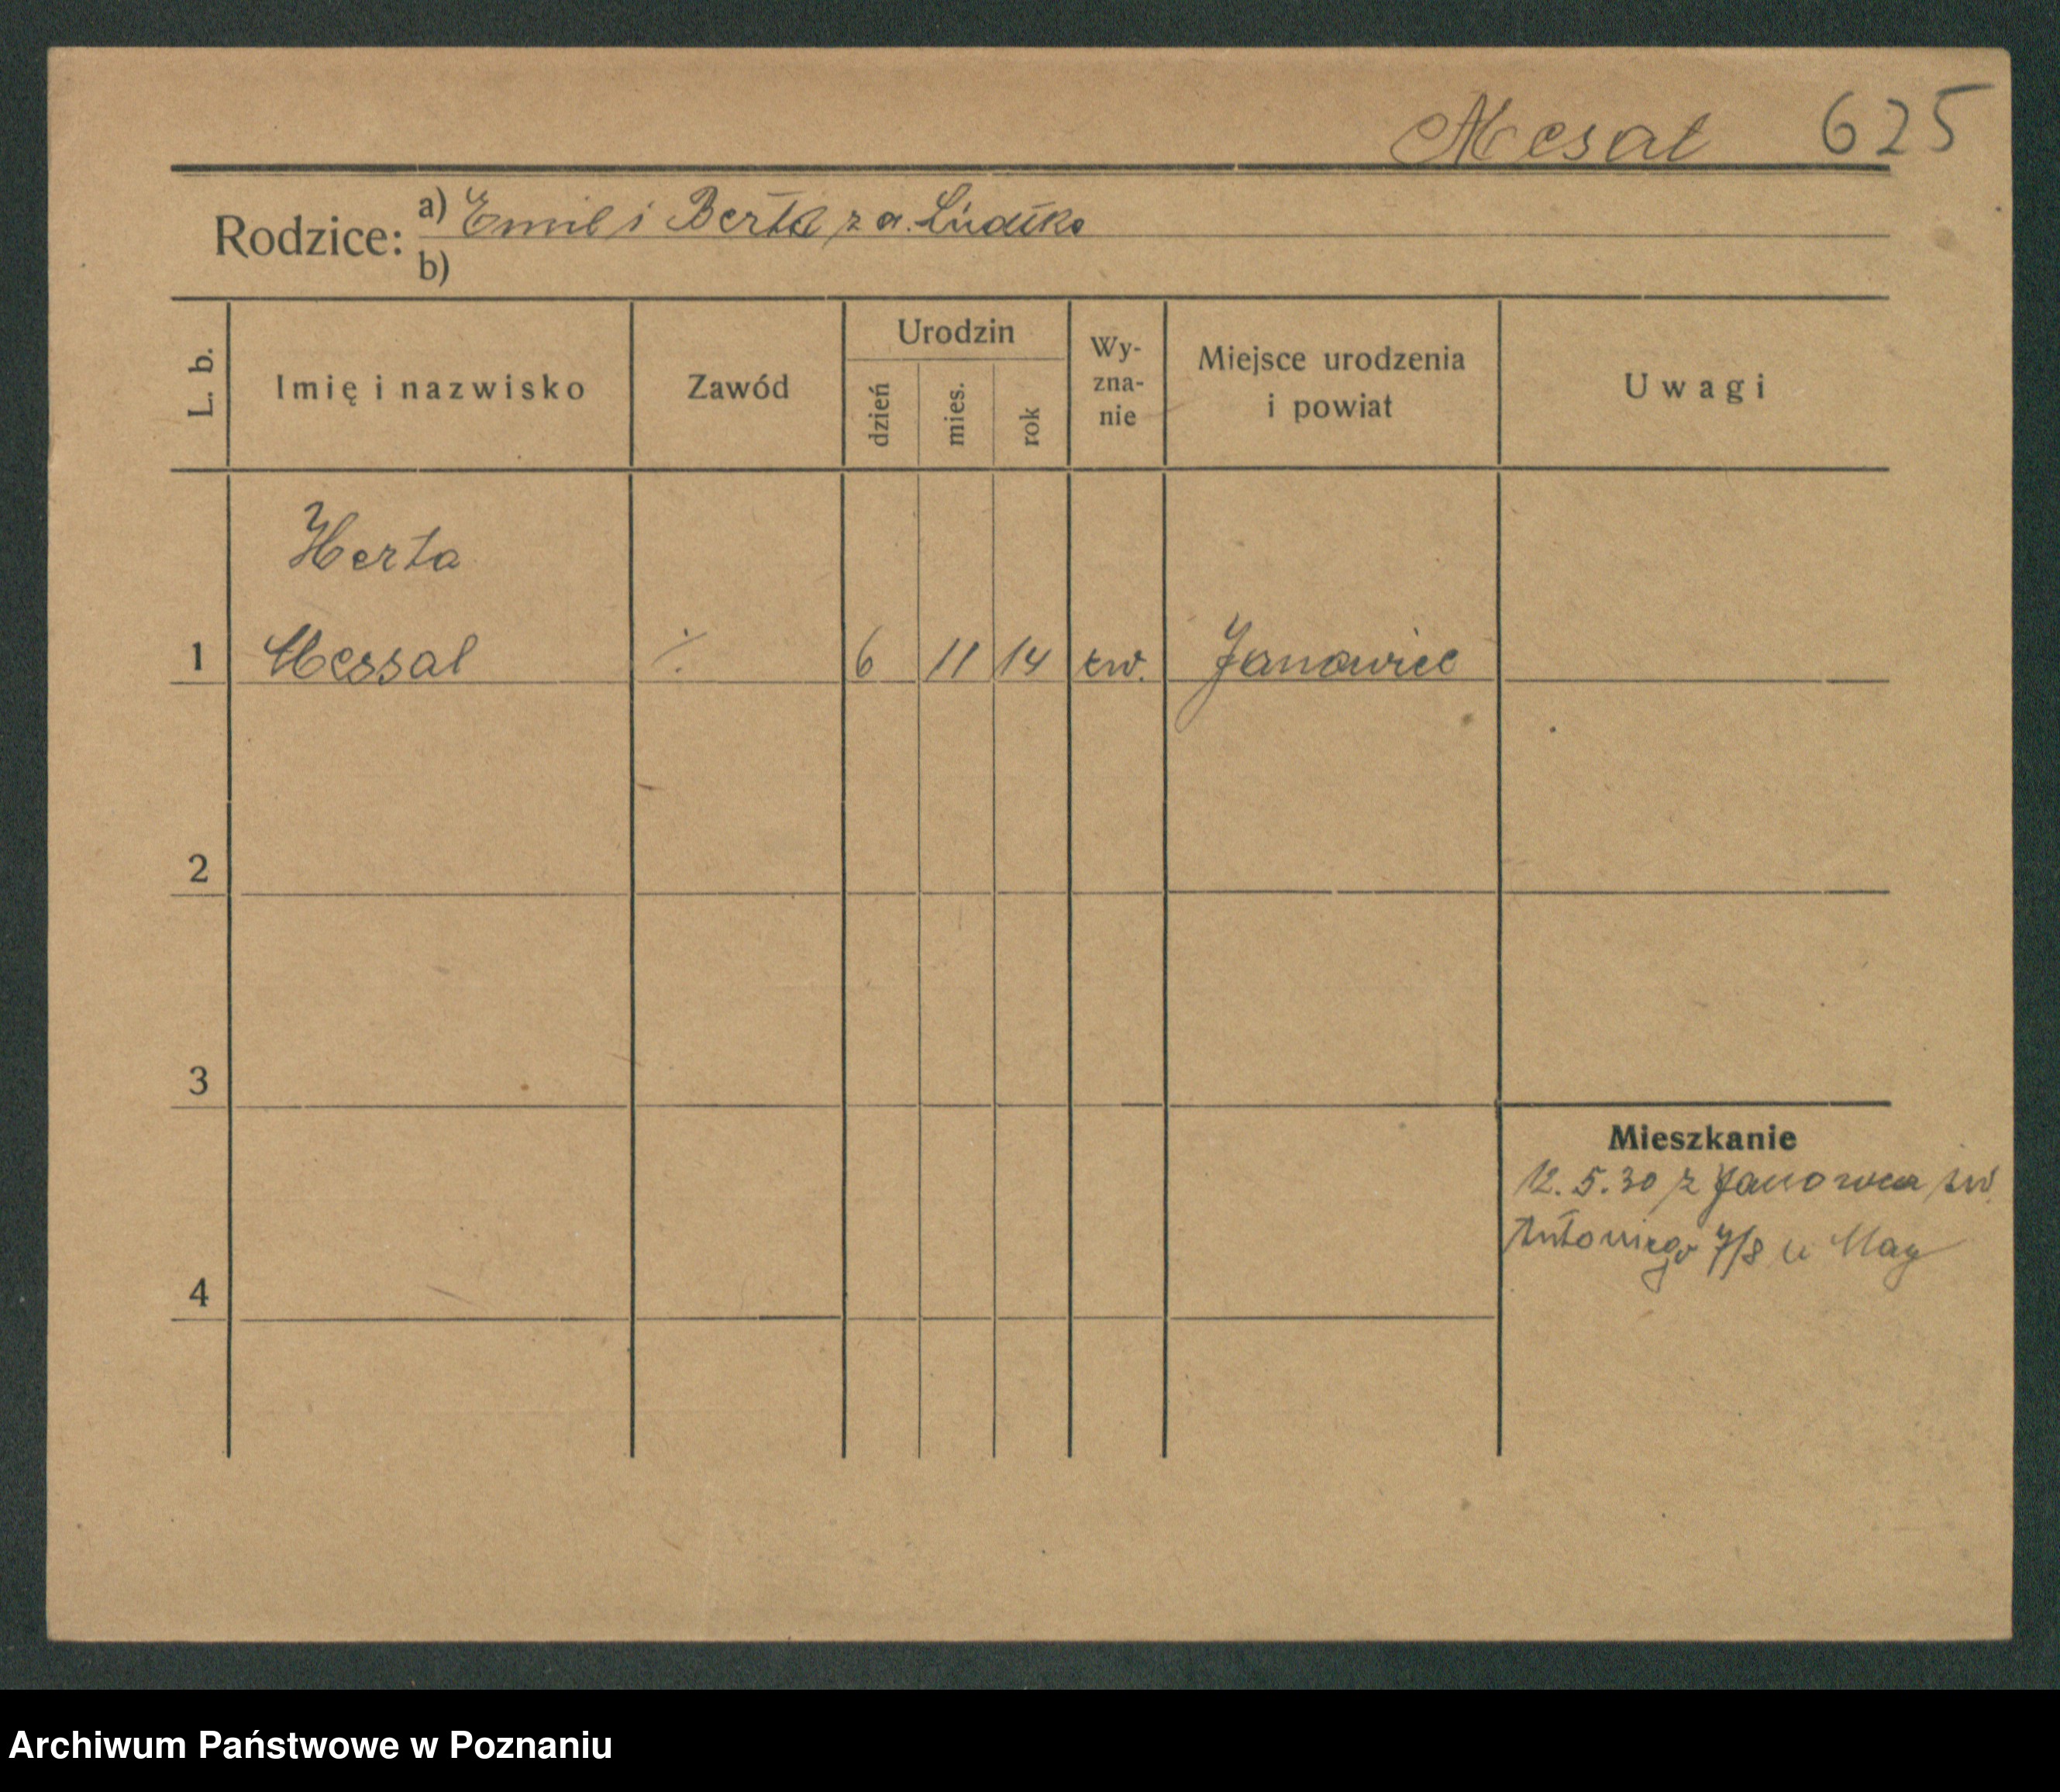 Mesal 625
Rodzice: a) Emil i Berta z d. Lüdtke
b)
L. b. Imię i nazwisko Zawód Urodzin dzień mies. rok Wy-zna-nie Miejsce urodzenia i powiat Uwagi
Herta
1 Messal ./. 6 11 14 ew. Janowiec
2
3
Mieszkanie
12.5.30 z Janowca św.
Antoniego 7/8 u May
4
Archiwum Państwowe w Poznaniu